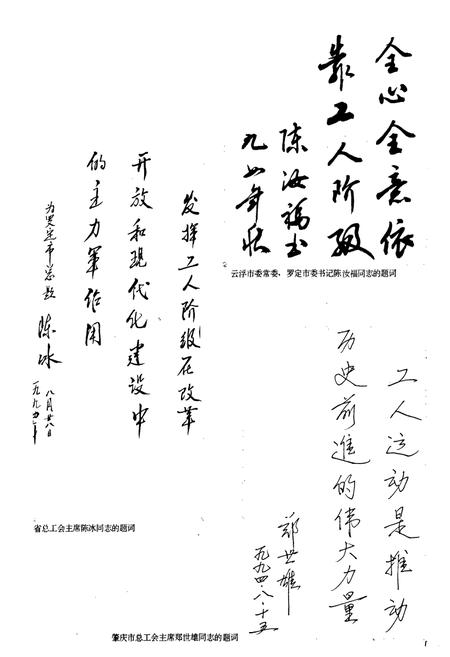 全心全意依
靠工人阶级
陈汝福书
九四年秋
云浮市委常委、罗定市委书记陈汝福同志的题词
发挥工人阶级在改革
开放和现代化建设中
的主力军作用
为罗定市总题
陈冰
八月廿八日
省总工会主席陈冰同志的题词
工人运动是推动
历史前進的伟大力量
郑世雄
一九九四·八·十五
肇庆市总工会主席郑世雄同志的题词
1